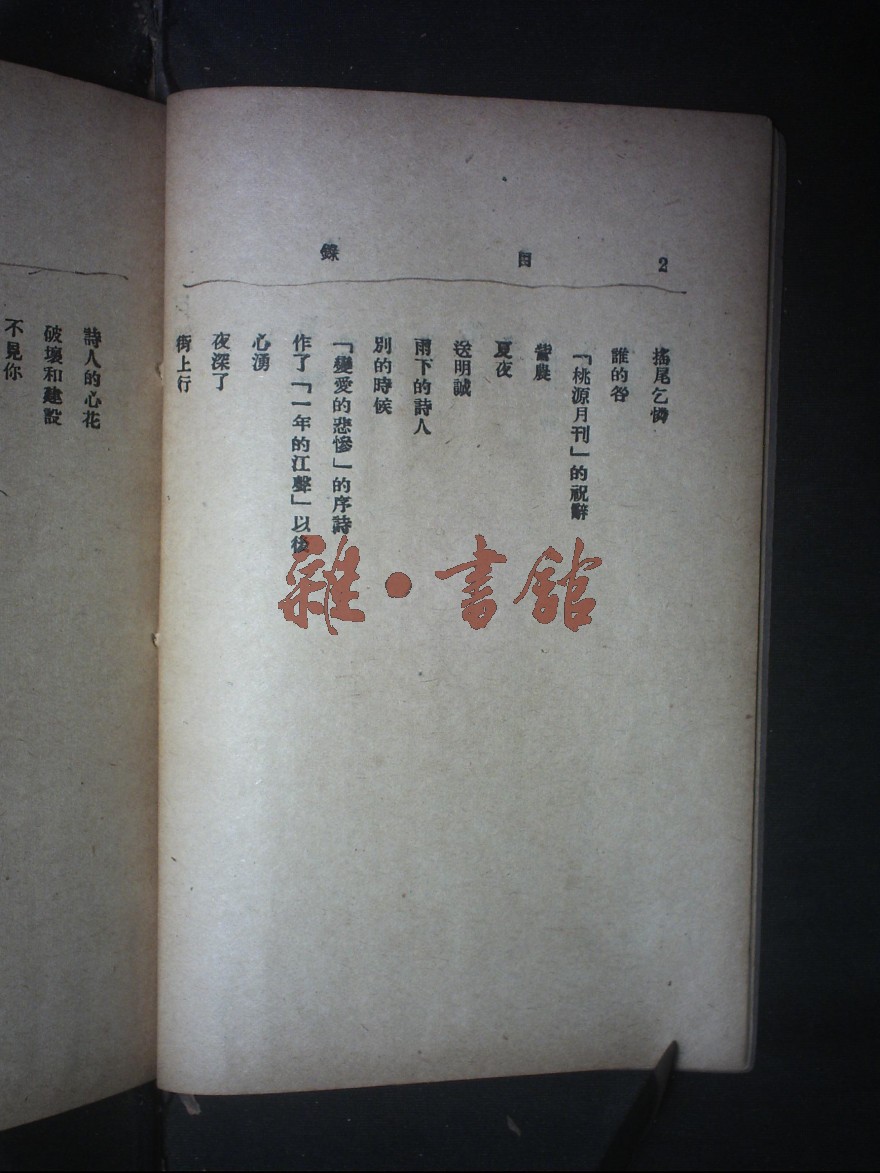 2 目 錄
搖尾乞憐
誰的咎
「桃源月刊」的祝辭
鶯農
夏夜
送明誠
雨下的詩人
別的時候
「變愛的悲慘」的序詩
作了「一年的江聲」以後
心湧
夜深了
街上行
詩人的心花
破壞和建設
不見你
雜·書館